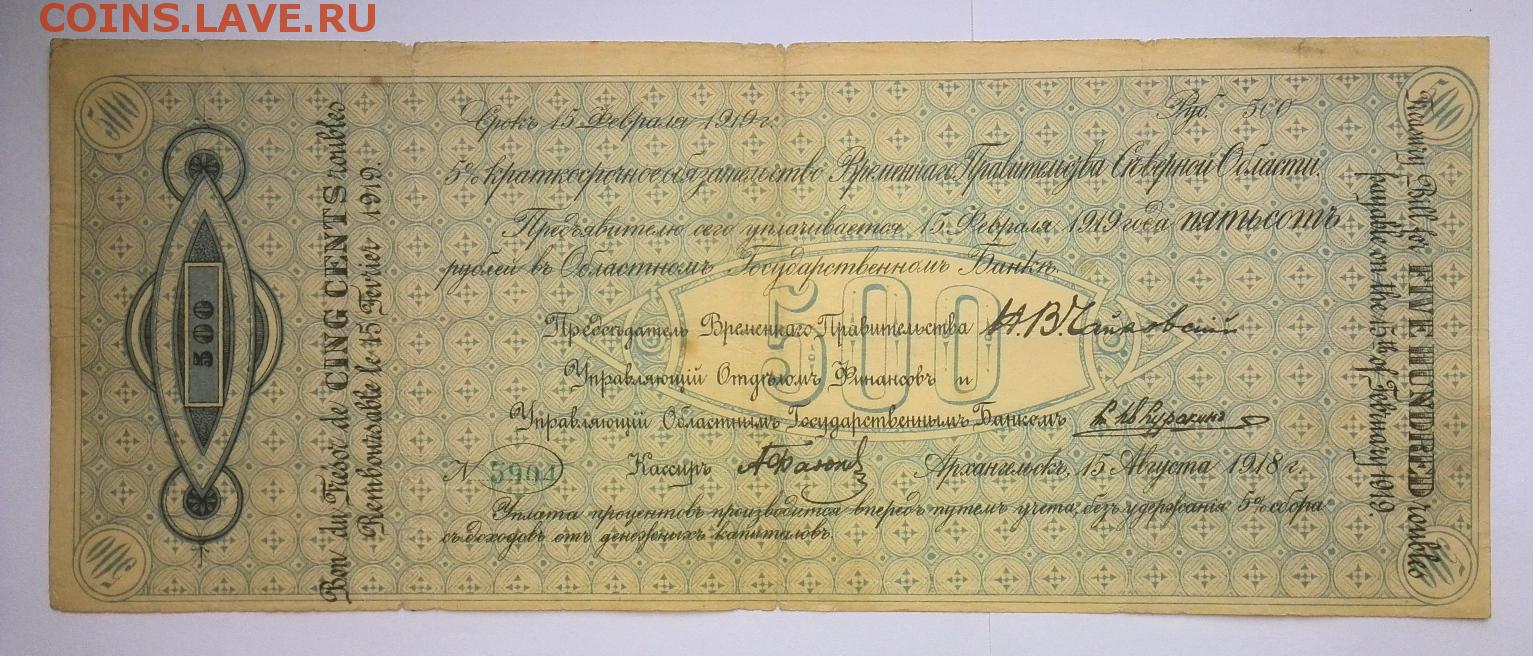 COINS.LAVE.RU
Срокъ 15 Февраля 1919 г.
Руб. 500
5% краткосрочное обязательство Временнаго Правительства Сѣверной Области.
Предъявителю сего уплачивается 15 Февраля 1919 года пятьсотъ
рублей въ Областномъ Государственномъ Банкѣ.
500
Предсѣдатель Временнаго Правительства Н. В. Чайковскій
Управляющій Отдѣломъ Финансовъ и
Управляющій Областнымъ Государственнымъ Банкомъ Куракинъ
N 5904
Кассиръ
Архангельскъ, 15 Августа 1918 г.
Уплата процентовъ производится впередъ путемъ учета, безъ удержанія 5% сбора
съ доходовъ отъ денежныхъ капиталовъ.
500
Bon du Trésor de CINQ CENTS roubles
Remboursable le 15 Février 1919.
Treasury Bill for FIVE HUNDRED roubles
payable on the 15th of February 1919
500
500
500
500